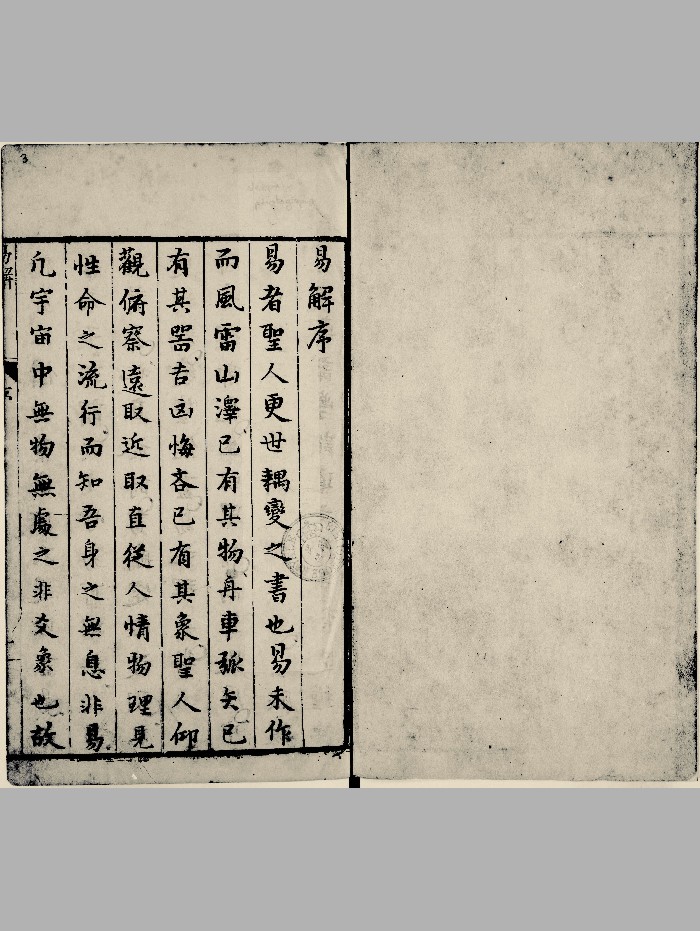 易解序
易者聖人更世耦變之書也易未作
而風雷山澤已有其物舟車弧矢已
有其器吉凶悔吝已有其象聖人仰
觀俯察遠取近取直從人情物理見
性命之流行而知吾身之無息非易
凢宇宙中無物無處之非爻象也故
易解
3